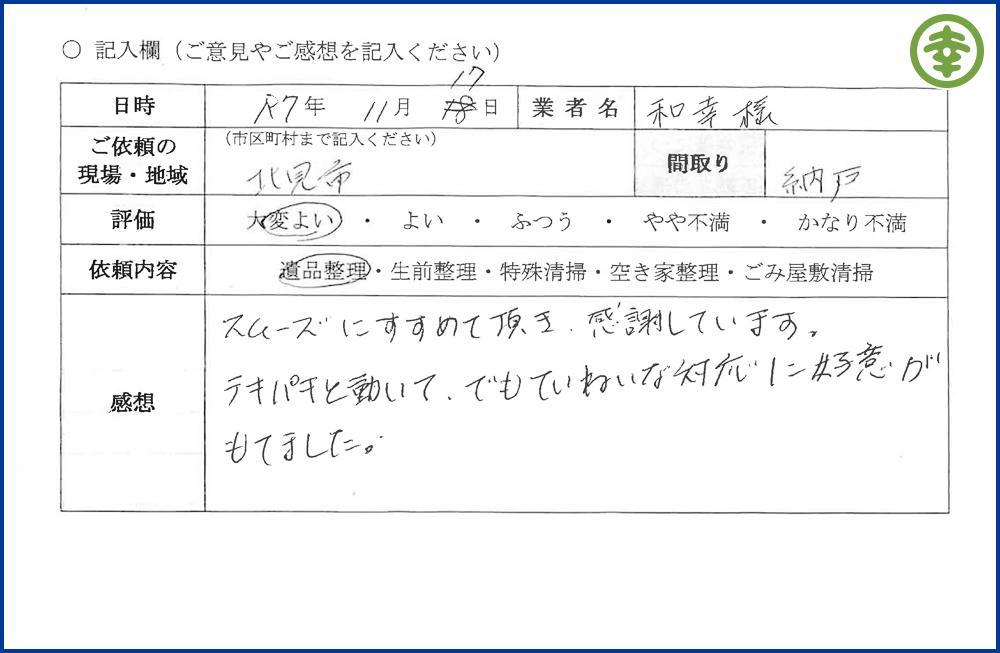 幸
〇 記入欄（ご意見やご感想を記入ください）
日時 R7年 11月 17日 業者名 和幸様
ご依頼の現場・地域 （市区町村まで記入ください） 北見市 間取り 納戸
評価 大変よい ・ よい ・ ふつう ・ やや不満 ・ かなり不満
依頼内容 遺品整理・生前整理・特殊清掃・空き家整理・ごみ屋敷清掃
感想
スムーズにすすめて頂き、感謝しています。
テキパキと動いて、でもていねいな対応に好意が
もてました。